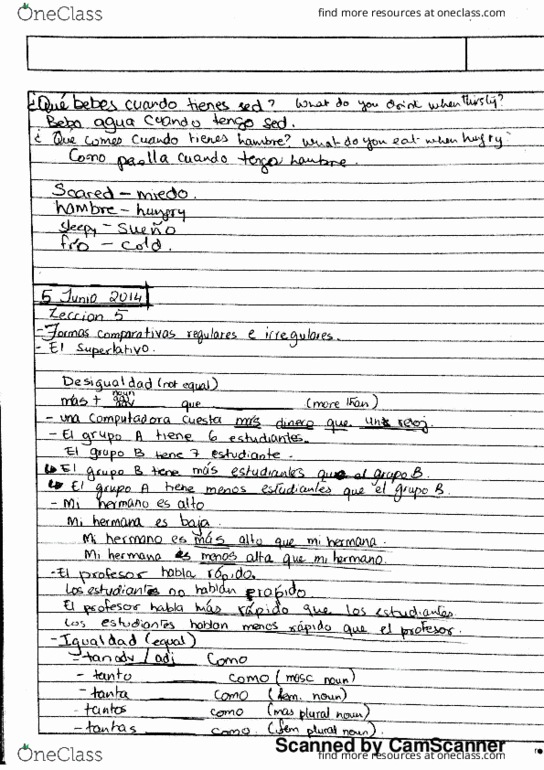 OneClass
find more resources at oneclass.com
¿Qué bebes cuando tienes sed? What do you drink when thirsty?
Bebo agua cuando tengo sed.
¿Qué comes cuando tienes hambre? What do you eat when hugry?
Como paella cuando tengo hambre.
Scared - miedo.
hambre - hungry
sleepy - sueño
frío - cold.
5 Junio 2014
Leccion 5
- Formas comparativas regulares e irregulares.
- El Superlativo.
Desigualdad (not equal)
noun
mas + adj que (more than)
adv
- una computadora cuesta más dinero que un reloj.
- El grupo A tiene 6 estudiantes.
El grupo B tiene 7 estudiante.
El grupo B tiene más estudiantes que el grupo B.
El grupo A tiene menos estudiantes que el grupo B.
- Mi hermano es alto
Mi hermana es baja.
Mi hermano es más alto que mi hermana.
Mi hermana es menos alta que mi hermano.
- El profesor habla rápido.
Los estudiantes no hablan rapido.
El profesor habla más rápido que los estudiantes.
Los estudiantes hablan menos rápido que el profesor.
- Igualdad (equal)
- tan adv / adj como
- tanto como (masc noun)
- tanta como (fem. noun)
- tantos como (mas plural noun)
- tantas como (fem plural noun).
Scanned by CamScanner
OneClass
find more resources at oneclass.com